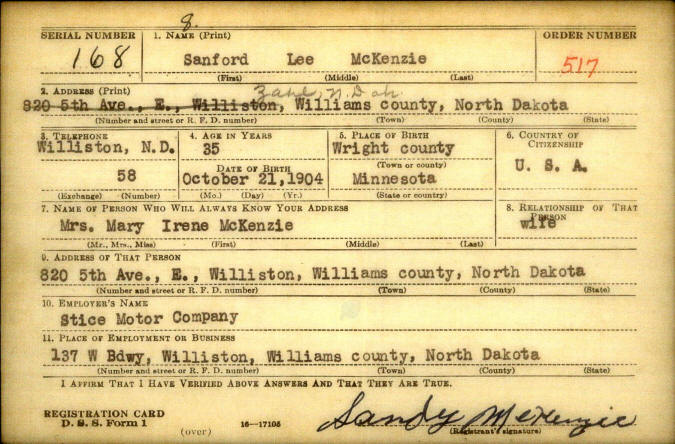 8.
SERIAL NUMBER 1. NAME (Print) ORDER NUMBER
168 Sanford Lee McKenzie 517
(First) (Middle) (Last)
2. ADDRESS (Print) Zahl, N. Dak.
820 5th Ave., E., Williston, Williams county, North Dakota
(Number and street or R. F. D. number) (Town) (County) (State)
3. TELEPHONE 4. AGE IN YEARS 5. PLACE OF BIRTH 6. COUNTRY OF
Williston, N.D. 35 Wright county CITIZENSHIP
DATE OF BIRTH (Town or county)
58 October 21,1904 Minnesota U. S. A.
(Exchange) (Number) (Mo.) (Day) (Yr.) (State or country)
7. NAME OF PERSON WHO WILL ALWAYS KNOW YOUR ADDRESS 8. RELATIONSHIP OF THAT
PERSON
Mrs. Mary Irene McKenzie wife
(Mr., Mrs., Miss) (First) (Middle) (Last)
9. ADDRESS OF THAT PERSON
820 5th Ave., E., Williston, Williams county, North Dakota
(Number and street or R. F. D. number) (Town) (County) (State)
10. EMPLOYER'S NAME
Stice Motor Company
11. PLACE OF EMPLOYMENT OR BUSINESS
137 W Bdwy, Williston, Williams county, North Dakota
(Number and street or R. F. D. number) (Town) (County) (State)
I AFFIRM THAT I HAVE VERIFIED ABOVE ANSWERS AND THAT THEY ARE TRUE.
REGISTRATION CARD
D. S. S. Form 1 (over) 16—17105 Sandy McKenzie
(Registrant's signature)